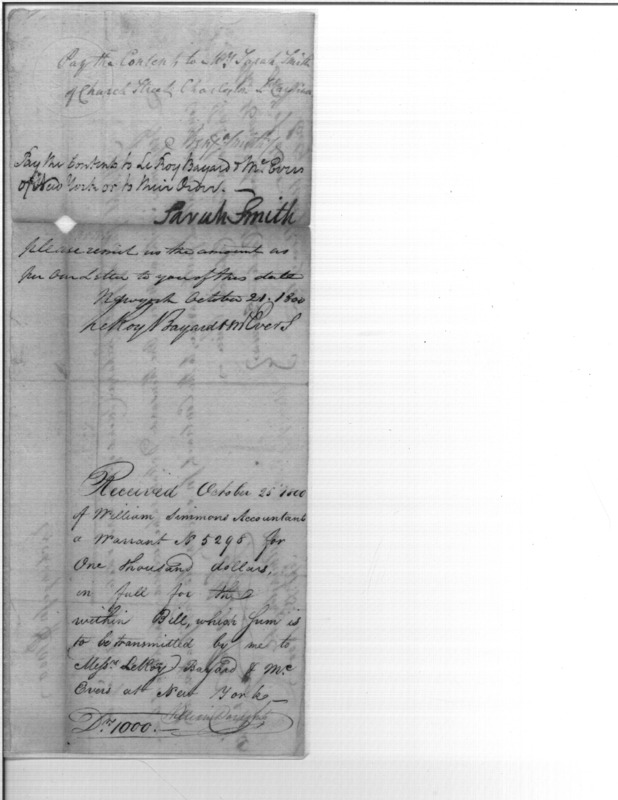 Pay the Contents to Mrs Sarah Smith
of Church Street Charleston So Carolina
Smith
Pay the Contents to Le Roy Bayard & Mc. Evers
of New York or to their Order. —
Sarah Smith
please remit us the amount as
per our Letter to you of this date
Newyork October 21. 1800
LeRoy Bayard & McEvers
Received October 25th 1800
of William Simmons Accountant
a Warrant No 5295 for
One thousand dollars,
in full for the
within Bill, which Sum is
to be transmitted by me to
Messrs LeRoy Bayard & Mc
Evers at New York —
Drs 1000. —